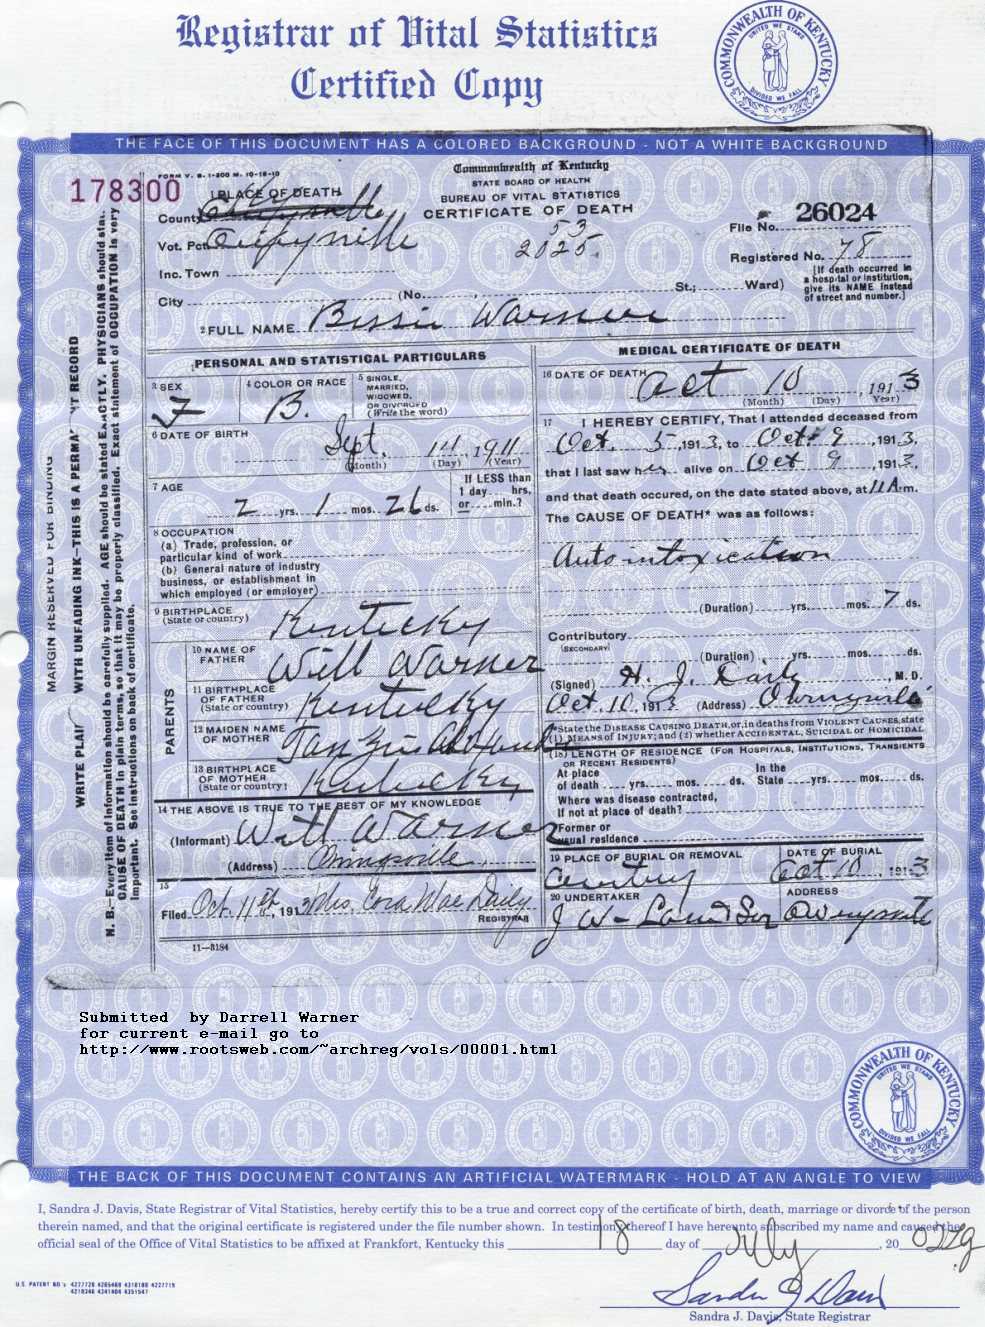 Registrar of Vital Statistics
Certified Copy
COMMONWEALTH OF KENTUCKY
UNITED WE STAND
DIVIDED WE FALL
THE FACE OF THIS DOCUMENT HAS A COLORED BACKGROUND - NOT A WHITE BACKGROUND
FORM V. S. 1-200 M. 10-18-10
178300
1 PLACE OF DEATH
County
Vot. Pct.
Inc. Town
City (No. St.; Ward)
Commonwealth of Kentucky
STATE BOARD OF HEALTH
BUREAU OF VITAL STATISTICS
CERTIFICATE OF DEATH
53
2025
File No. 26024
Registered No. 78
[If death occurred in a hospital or institution, give its NAME instead of street and number.]
2 FULL NAME Bessie Warner
PERSONAL AND STATISTICAL PARTICULARS
3 SEX F
4 COLOR OR RACE B.
5 SINGLE, MARRIED, WIDOWED, OR DIVORCED (Write the word)
6 DATE OF BIRTH Sept. 14, 1911
(Month) (Day) (Year)
7 AGE 2 yrs. 1 mos. 26 ds.
If LESS than 1 day hrs. or min.?
8 OCCUPATION
(a) Trade, profession, or particular kind of work
(b) General nature of industry business, or establishment in which employed (or employer)
9 BIRTHPLACE (State or country) Kentucky
PARENTS
10 NAME OF FATHER Will Warner
11 BIRTHPLACE OF FATHER (State or country) Kentucky
12 MAIDEN NAME OF MOTHER
13 BIRTHPLACE OF MOTHER (State or country) Kentucky
14 THE ABOVE IS TRUE TO THE BEST OF MY KNOWLEDGE
(Informant) Will Warner
(Address) Owingsville
15
Filed Oct. 11th, 1913 Mrs. Cora Mae Daily
REGISTRAR
11-3184
MEDICAL CERTIFICATE OF DEATH
16 DATE OF DEATH Oct 10, 1913
(Month) (Day) (Year)
17 I HEREBY CERTIFY, That I attended deceased from
Oct. 5, 1913, to Oct 9, 1913,
that I last saw her alive on Oct 9, 1913,
and that death occured, on the date stated above, at 11 A.m.
The CAUSE OF DEATH* was as follows:
Autointoxication
(Duration) yrs. mos. 7 ds.
Contributory
(SECONDARY)
(Duration) yrs. mos. ds.
(Signed) H. J. Daily, M.D.
Oct. 10, 1913 (Address) Owingsville
*State the DISEASE CAUSING DEATH, or, in deaths from VIOLENT CAUSES, state
(1) MEANS OF INJURY; and (2) whether ACCIDENTAL, SUICIDAL or HOMICIDAL
18 LENGTH OF RESIDENCE (FOR HOSPITALS, INSTITUTIONS, TRANSIENTS
OR RECENT RESIDENTS)
At place of death yrs. mos. ds. In the State yrs. mos. ds.
Where was disease contracted,
If not at place of death?
Former or
usual residence
19 PLACE OF BURIAL OR REMOVAL
DATE OF BURIAL
Oct 10, 1913
20 UNDERTAKER
ADDRESS
Owingsville
MARGIN RESERVED FOR BINDING
WRITE PLAIN WITH UNFADING INK-THIS IS A PERMA T RECORD
N. B.-Every item of information should be carefully supplied. AGE should be stated EXACTLY. PHYSICIANS should state
CAUSE OF DEATH in plain terms, so that it may be properly classified. Exact statement of OCCUPATION is very
important. See instructions on back of certificate.
Submitted by Darrell Warner
for current e-mail go to
http://www.rootsweb.com/~archreg/vols/00001.html
COMMONWEALTH OF KENTUCKY
UNITED WE STAND
DIVIDED WE FALL
THE BACK OF THIS DOCUMENT CONTAINS AN ARTIFICIAL WATERMARK - HOLD AT AN ANGLE TO VIEW
I, Sandra J. Davis, State Registrar of Vital Statistics, hereby certify this to be a true and correct copy of the certificate of birth, death, marriage or divorce of the person
therein named, and that the original certificate is registered under the file number shown. In testimony thereof I have hereunto subscribed my name and caused the
official seal of the Office of Vital Statistics to be affixed at Frankfort, Kentucky this 18 day of July, 20 02
Sandra J Davis
Sandra J. Davis, State Registrar
U.S. PATENT NO.'s 4227720 4265469 4310180 4227719
4210346 4341404 4351547